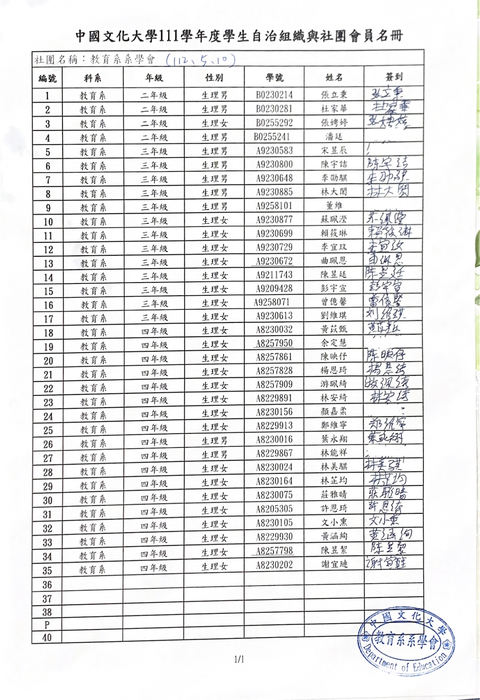 中國文化大學111學年度學生自治組織與社團會員名冊
社團名稱：教育系系學會 (112.5.10)
編號 科系 年級 性別 學號 姓名 簽到
1 教育系 二年級 生理男 B0230214 張立秉 張立秉
2 教育系 二年級 生理男 B0230281 杜家華 杜家華
3 教育系 二年級 生理女 B0255292 張娉婷 張娉婷
4 教育系 二年級 生理男 B0255241 潘廷
5 教育系 三年級 生理男 A9230583 宋昱辰
6 教育系 三年級 生理男 A9230800 陳宇誥 陳宇誥
7 教育系 三年級 生理男 A9230648 李劭騏
8 教育系 三年級 生理男 A9230885 林大閔 林大閔
9 教育系 三年級 生理男 A9258101 董維
10 教育系 三年級 生理女 A9230877 蘇珮瀅
11 教育系 三年級 生理女 A9230699 賴筱琳 賴筱琳
12 教育系 三年級 生理女 A9230729 李宜玟 李宜玟
13 教育系 三年級 生理女 A9230672 曲珮恩
14 教育系 三年級 生理女 A9211743 陳昱廷 陳昱廷
15 教育系 三年級 生理女 A9209428 彭宇宣 彭宇宣
16 教育系 三年級 生理女 A9258071 曾僡馨
17 教育系 三年級 生理女 A9230613 劉維琪
18 教育系 四年級 生理女 A8230032 黃苡甄
19 教育系 四年級 生理女 A8257950 余定慧
20 教育系 四年級 生理女 A8257861 陳映伃 陳映伃
21 教育系 四年級 生理女 A8257828 楊恩琦 楊恩琦
22 教育系 四年級 生理女 A8257909 游珮綺 游珮綺
23 教育系 四年級 生理女 A8229891 林安綺 林安綺
24 教育系 四年級 生理女 A8230156 顏嘉柔
25 教育系 四年級 生理女 A8229913 鄭維寧 鄭維寧
26 教育系 四年級 生理男 A8230016 葉永翔 葉永翔
27 教育系 四年級 生理男 A8229867 林能祥
28 教育系 四年級 生理女 A8230024 林美騏
29 教育系 四年級 生理女 A8230164 林芷均 林芷均
30 教育系 四年級 生理女 A8230075 莊雅晴 莊雅晴
31 教育系 四年級 生理女 A8205305 許恩琦 許恩琦
32 教育系 四年級 生理女 A8230105 文小熏 文小熏
33 教育系 四年級 生理女 A8229930 黃涵絢 黃涵絢
34 教育系 四年級 生理女 A8257798 陳昱絜 陳昱絜
35 教育系 四年級 生理女 A8230202 謝宜璉
36
37
38
P
40
1/1
中國文化大學
教育系系學會
Department of Education